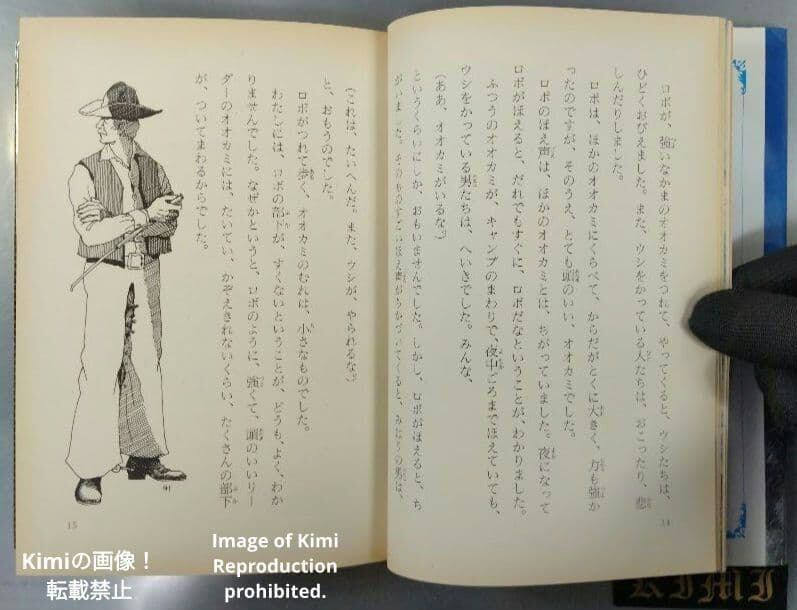 ロボが、強いなかまのオオカミをつれて、やってくると、ウシたちは、
ひどくおびえました。また、ウシをかっている人たちは、おこったり、悲
しんだりしました。
ロボは、ほかのオオカミにくらべて、からだがとくに大きく、力も強か
ったのですが、そのうえ、とても頭のいい、オオカミでした。
ロボのほえ声は、ほかのオオカミとは、ちがっていました。夜になって
ロボがほえると、だれでもすぐに、ロボだなということが、わかりました。
ふつうのオオカミが、キャンプのまわりで、夜中ごろまでほえていても、
ウシをかっている男たちは、へいきでした。みんな、
(ああ、オオカミがいるな。)
というくらいにしか、おもいませんでした。しかし、ロボがほえると、ち
がいました。そのものすごいほえ声がちかづいてくると、みはりの男は、
14
(これは、たいへんだ。また、ウシが、やられるな。)
と、おもうのでした。
ロボがつれて歩く、オオカミのむれは、小さなものでした。
わたしには、ロボの部下が、すくないということが、どうも、よく、わか
りませんでした。なぜかというと、ロボのように、強くて、頭のいいリー
ダーのオオカミには、たいてい、かぞえきれないくらい、たくさんの部下
が、ついてまわるからでした。
15
Kimiの画像！
転載禁止
Image of Kimi
Reproduction
prohibited.
KIMI